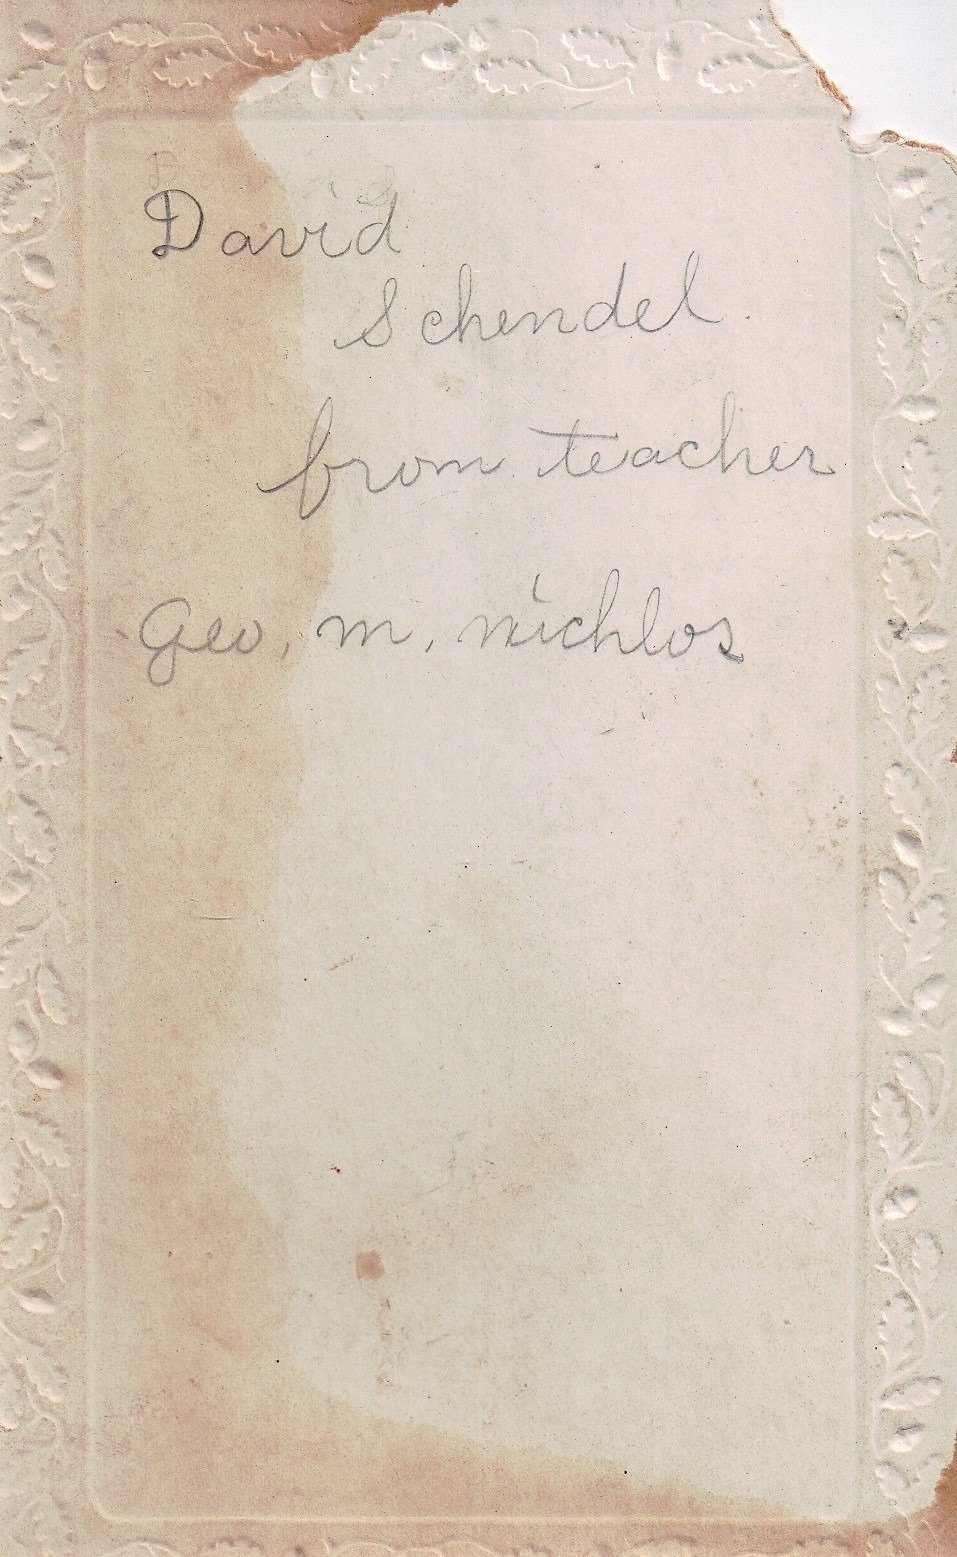 David
Schendel.
from teacher
Geo. M. Nichlos